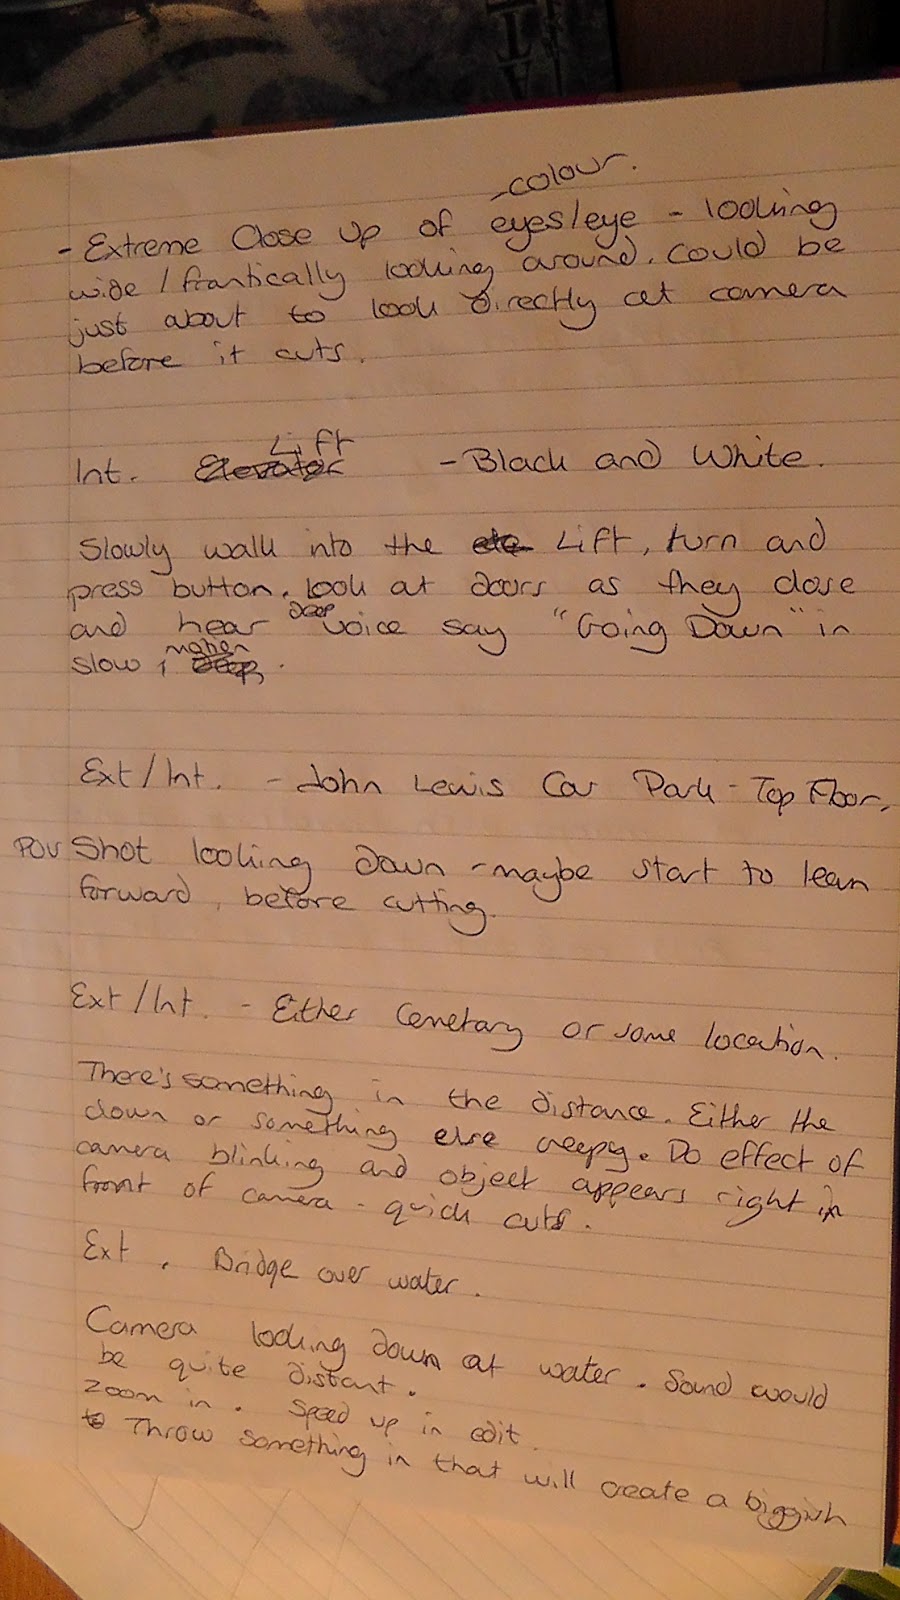 -colour.
- Extreme Close up of eyes/eye - looking
wide / frantically looking around. Could be
just about to look directly at camera
before it cuts.
Lift
Int. Elevator - Black and White.
Slowly walk into the ele Lift, turn and
press button. Look at doors as they close
and hear deep voice say "Going Down" in
slow motion deep.
Ext/Int. - John Lewis Car Park - Top Floor.
POV Shot looking down - maybe start to lean
forward, before cutting.
Ext/Int. - Either Cemetary or some location.
There's something in the distance. Either the
clown or something else creepy. Do effect of
camera blinking and object appears right in
front of camera - quick cuts.
Ext. Bridge over water.
Camera looking down at water. Sound would
be quite distant.
Zoom in. Speed up in edit.
to Throw something in that will create a biggish